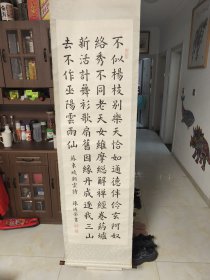 不似楊枝別樂天恰如通德伴伶玄阿奴
絡秀不同老天女維摩總解禪經卷藥爐
新活計舞衫歌扇舊因緣丹成逐我三山
去不作巫陽雲雨仙 蘇東坡朝雲詩